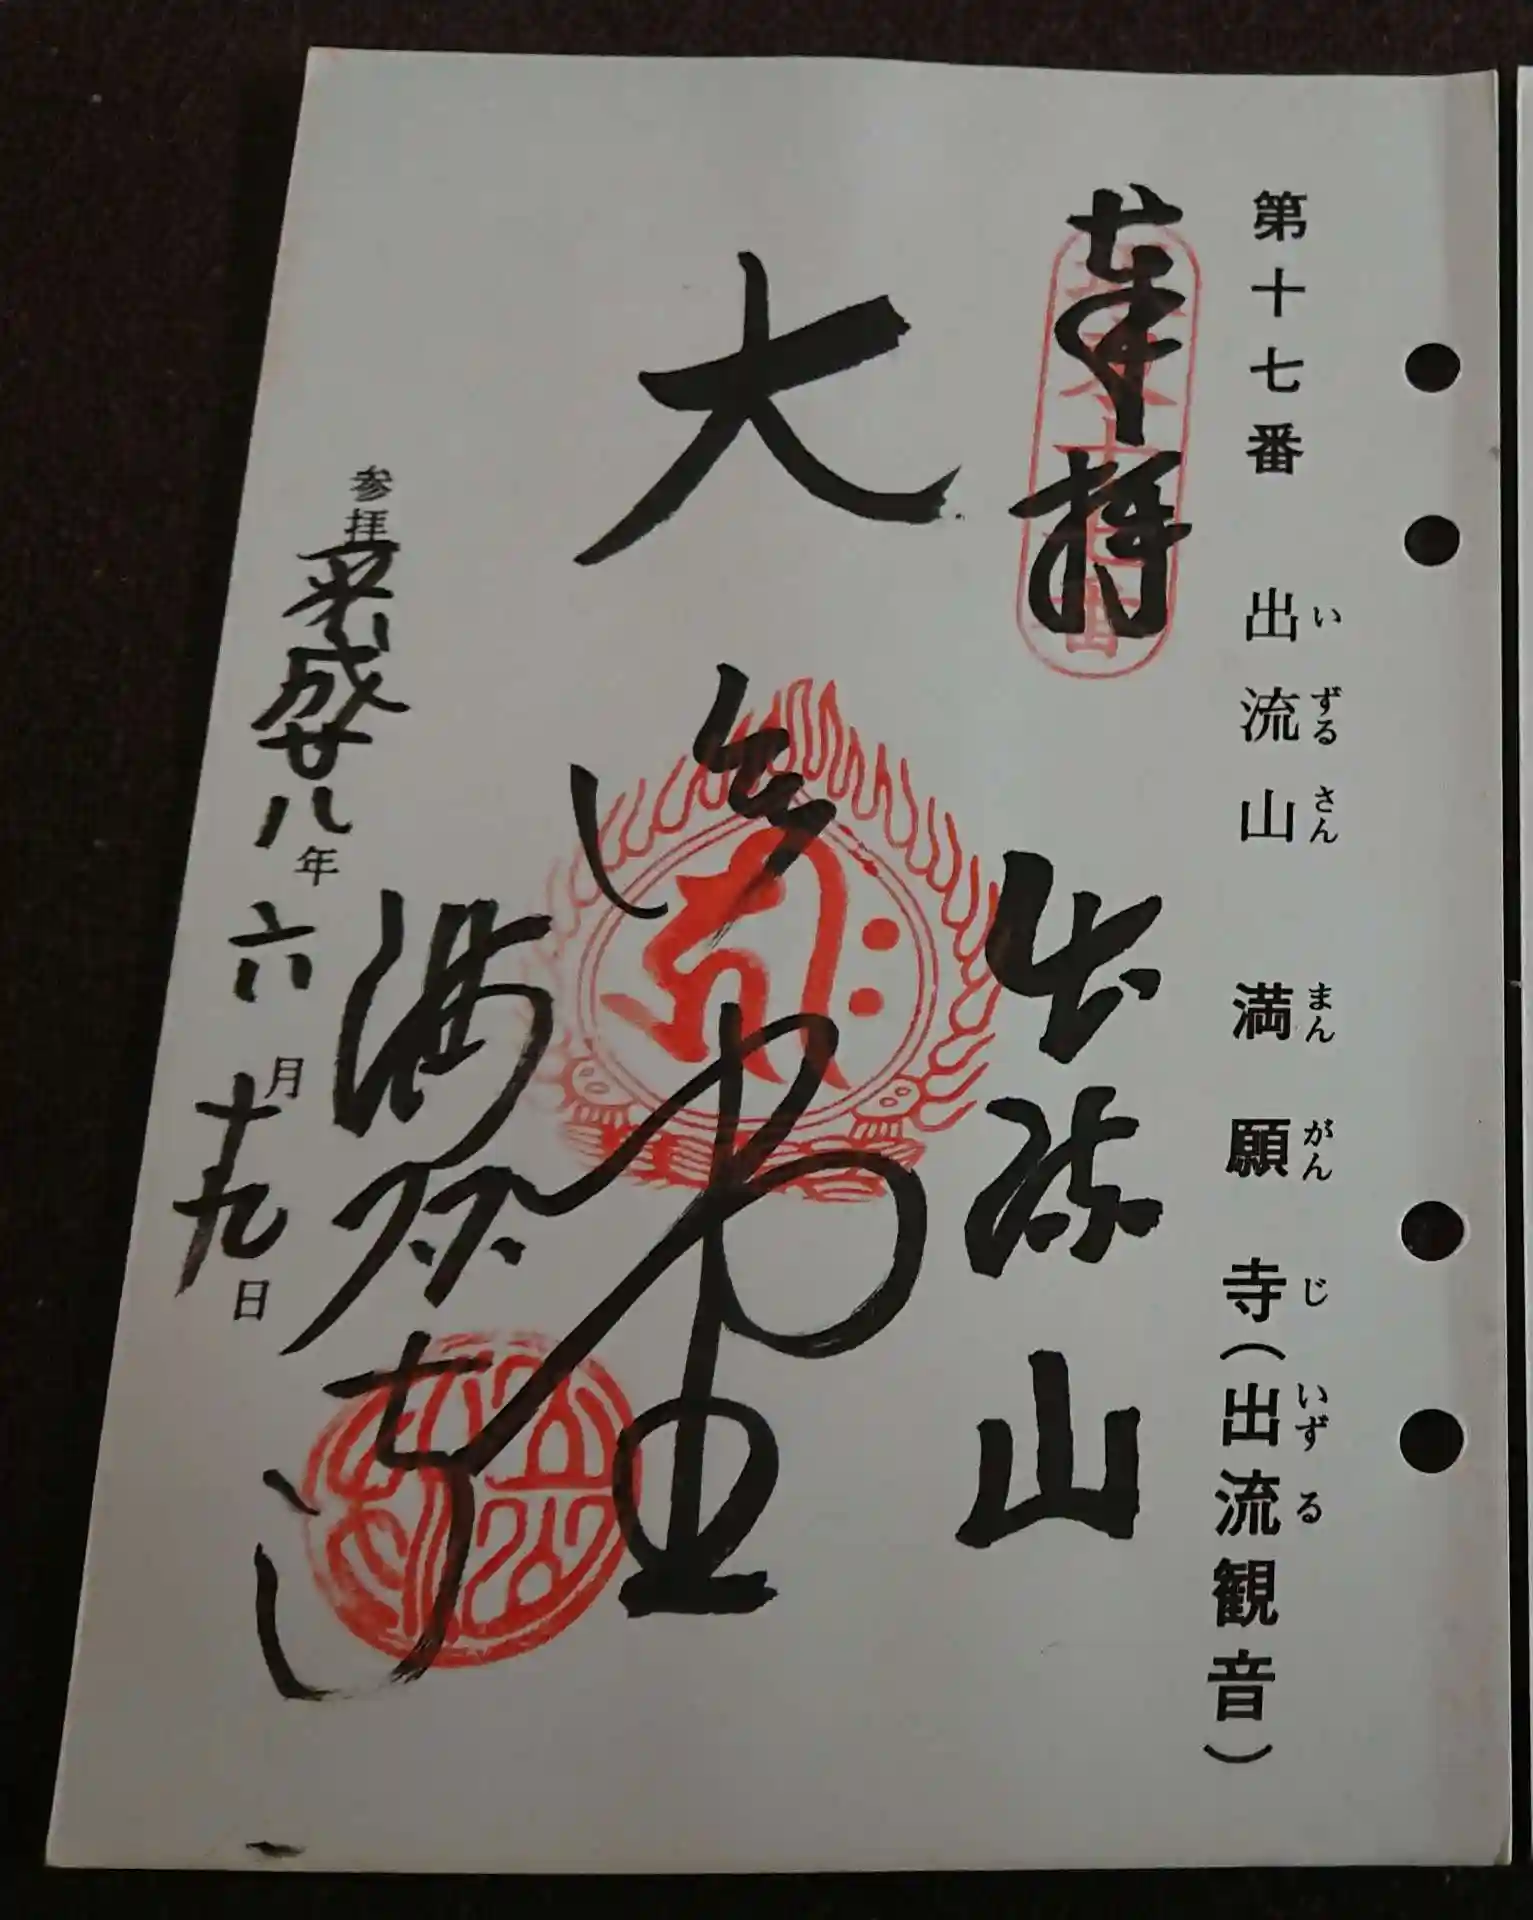 第十七番 出流山 満願寺(出流観音)
いずるさん まんがんじ いずる
奉拝
坂東十七番
出流山
大
満願寺
参拝平成廿八年六月十九日